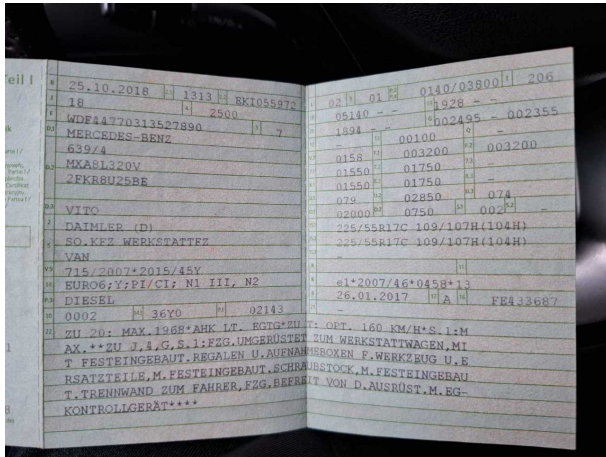 Teil I
B 25.10.2018 2.1 1313 2.2 EKI055972
J 18 4 2500
E WDF44770313527890 3 7
D.1 MERCEDES-BENZ
639/4
D.2 MXA8L320V
2FKR8U25BE
D.3 VITO
2 DAIMLER (D)
5 SO.KFZ WERKSTATTFZ
VAN
V.9 715/2007*2015/45Y
14 EURO6;Y;PI/CI; N1 III, N2
P.3 DIESEL
10 0002 14.1 36Y0 P.1 02143
L 02 9 01 P.2 P.4 0140/03800 T 206
05140 – – 1928 – –
1894 – – 002495 – 002355
– 00100 –
0158 F.1 003200 F.2 003200
01550 01750 –
01550 01750 –
079 02850 074
02000 0750 002 –
225/55R17C 109/107H(104H)
225/55R17C 109/107H(104H)
–
–
e1*2007/46*0458*13
26.01.2017 A FE433687
–
22 ZU 20: MAX.1968*AHK LT. EGTG*ZU T: OPT. 160 KM/H*S.1:M
AX.**ZU J,4,G,S.1:FZG.UMGERÜSTET ZUM WERKSTATTWAGEN,MI
T FESTEINGEBAUT.REGALEN U.AUFNAHMEBOXEN F.WERKZEUG U.E
RSATZTEILE,M.FESTEINGEBAUT.SCHRAUBSTOCK,M.FESTEINGEBAU
T.TRENNWAND ZUM FAHRER,FZG.BEFREIT VON D.AUSRÜST.M.EG-
KONTROLLGERÄT****